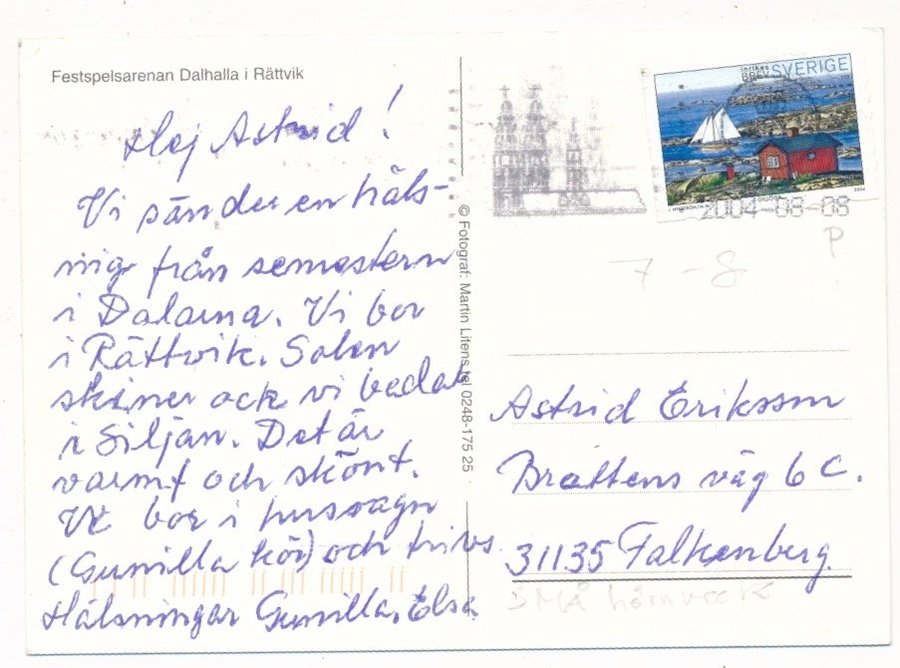 Festspelsarenan Dalhalla i Rättvik
Hej Astrid!
Vi sänder en häls-
ning från semestern
i Dalarna. Vi bor
i Rättvik. Solen
skiner och vi badat
i Siljan. Det är
varmt och skönt.
Vi bor i husvagn
(Gunilla kör) och trivs
Hälsningar Gunilla, Elsa
© Fotograf: Martin Litens tel 0248-175 25
BREV SVERIGE
2004
2004-08-08
P
7-8
Astrid Eriksson
Bråttens väg 6 C.
31135 Falkenberg.
SMÅ hörnveck